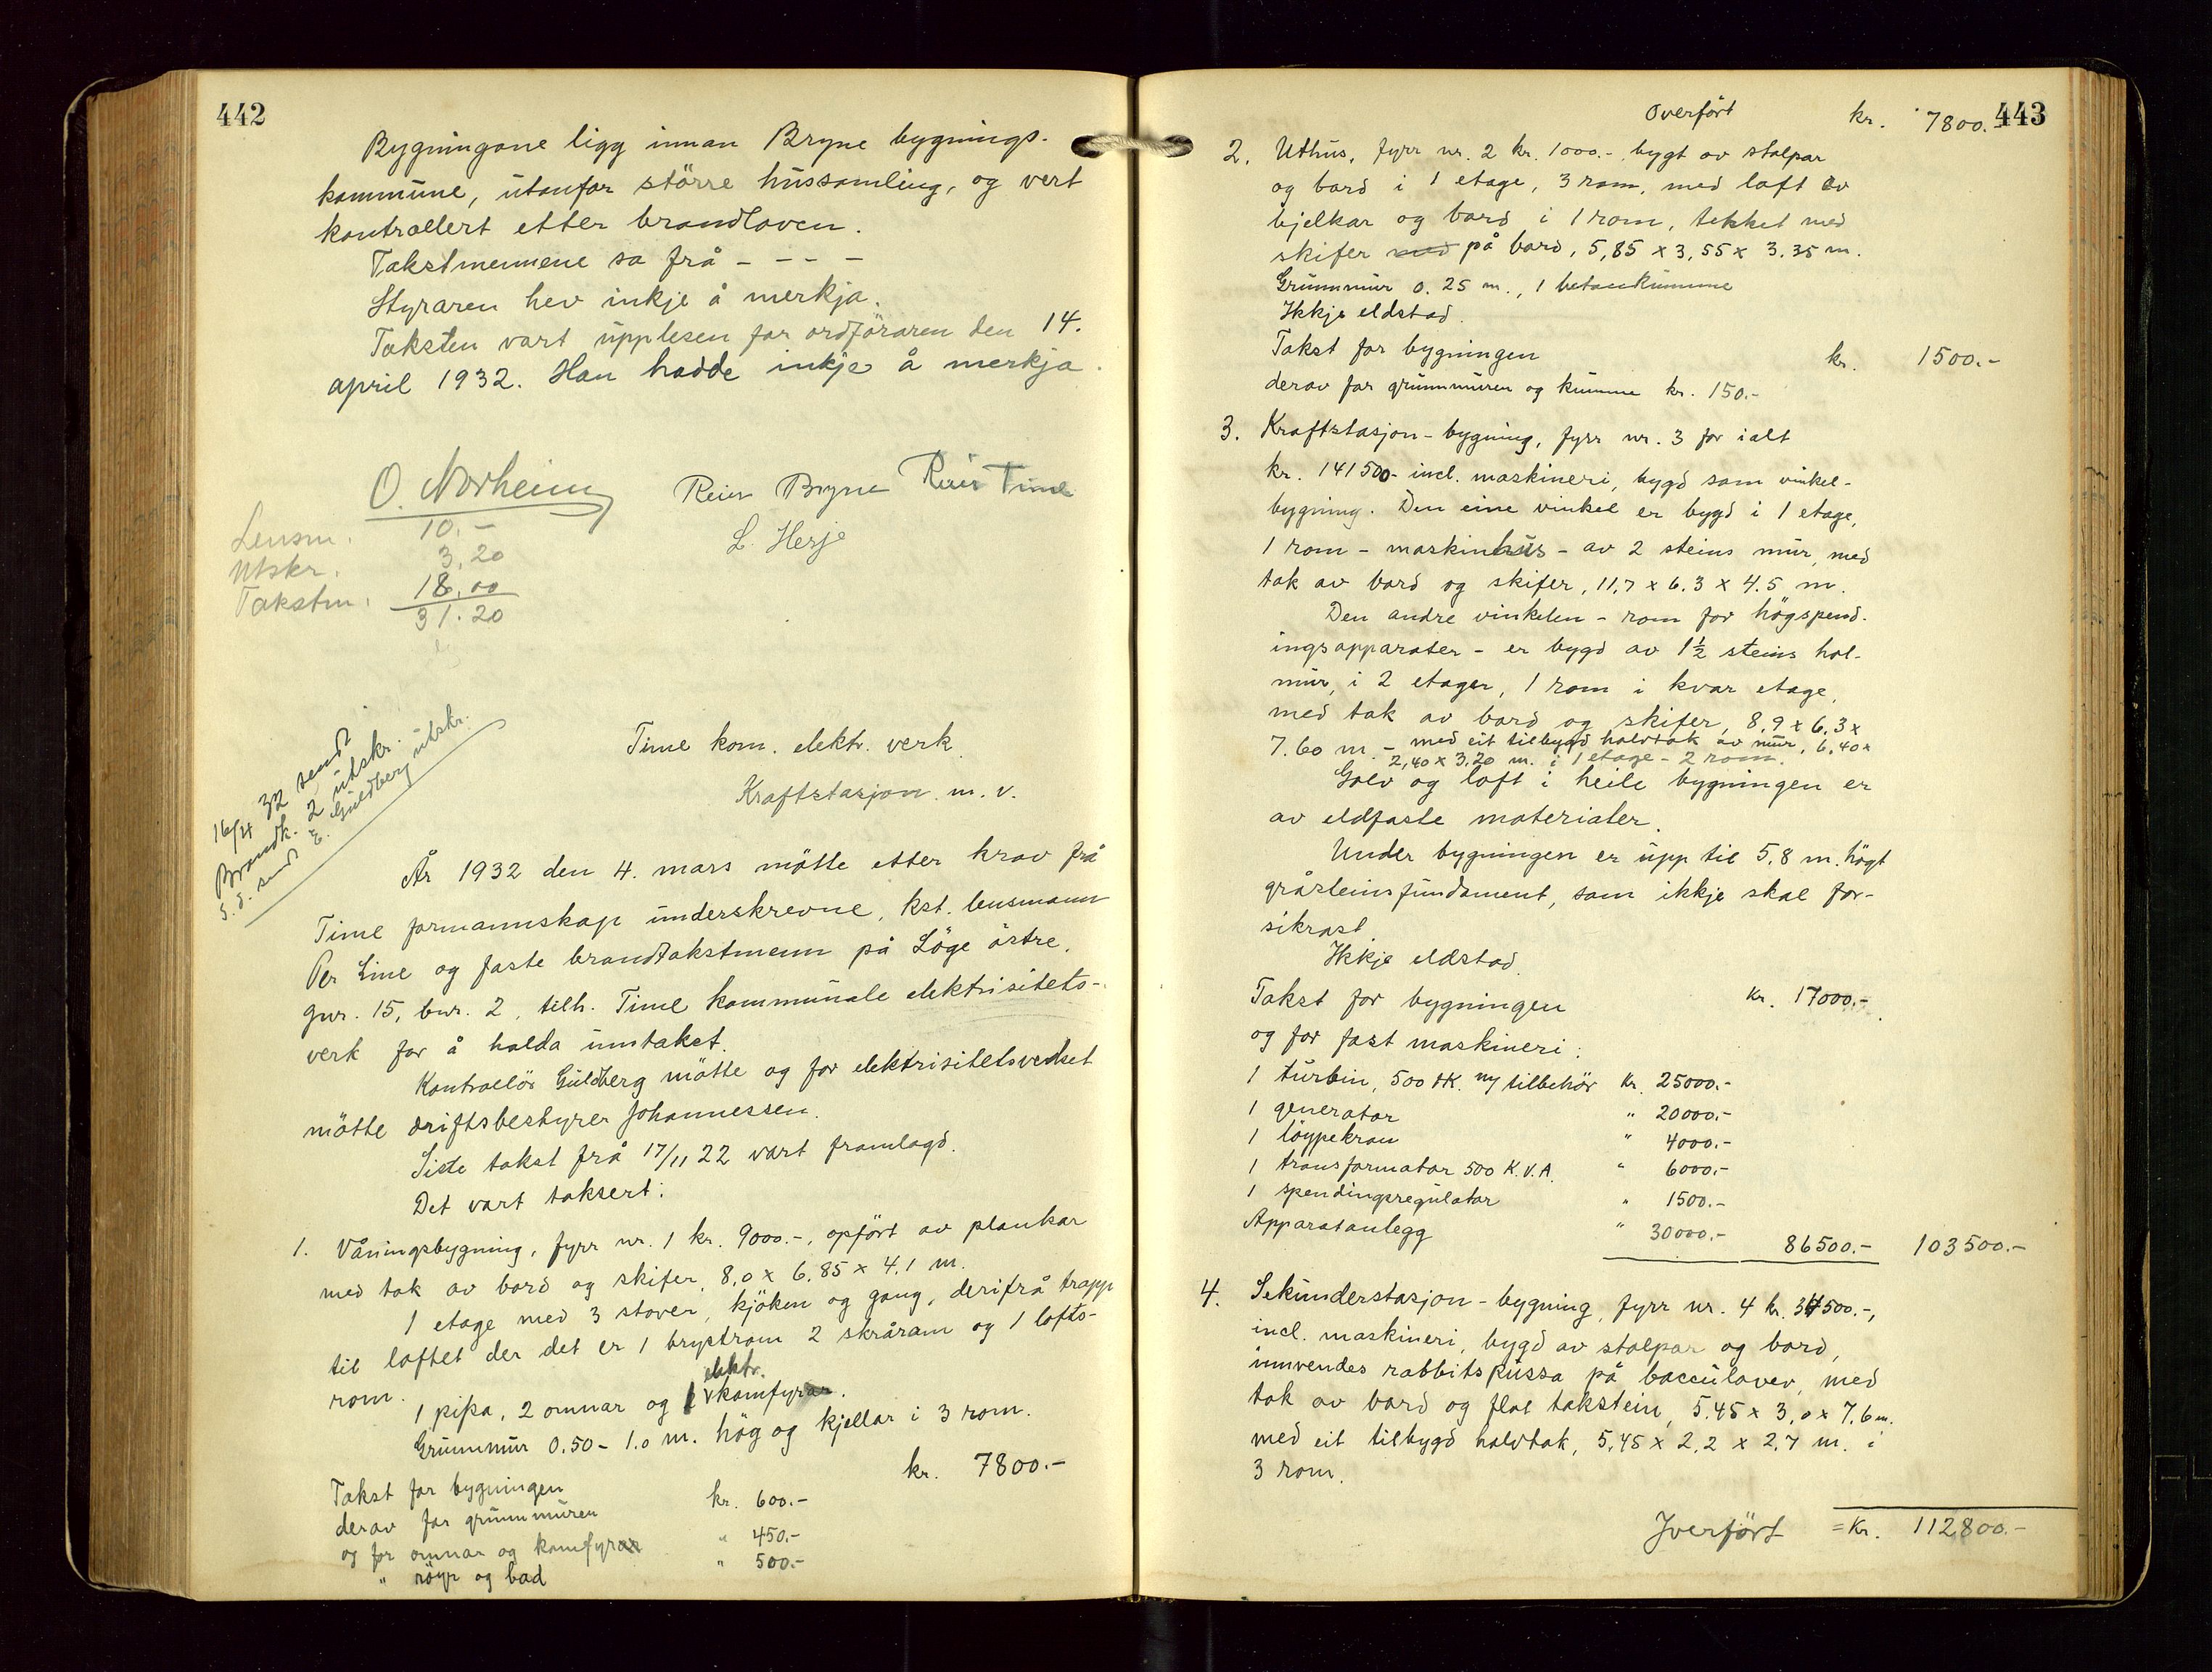 442
Bygningane ligg innan Bryne bygnings-
kommune, utanfor större hussamling, og vert
kontrollert etter brandloven.
Takstmennene sa frå - - - -
Styraren hev inkje å merkja.
Taksten vart upplesen for ordföraren den 14.
april 1932. Han hadde inkje å merkja.
O. Norheim
Reier Bryne Reier Time
L. Herje
Lensm. 10.-
Utskr. 3,20
Takstm. 18,00
31.20
16/4 32 sendt
Brandk. 2 utskr.
S. d. sendt E. Guldberg utskr.
Time kom. elektr. verk
Kraftstasjon m. v.
År 1932 den 4. mars mötte etter krav frå
Time formannskap underskrevne, kst. lensmann
Per Line og faste brandtakstmenn på Löge östre,
gnr. 15, bnr. 2, tilh. Time kommunale elektrisitets-
verk for å halda umtakst.
Kontrollör Guldberg mötte og for elektrisitetsverket
mötte driftsbestyrer Johannessen.
Siste takst frå 17/11 22 vart framlagd.
Det vart taksert:
1. Våningsbygning, fyrr nr. 1 kr. 9000.-, opfört av plankar
med tak av bord og skifer, 8,0 x 6,85 x 4,1 m.
1 etage med 3 stover, kjöken og gang, derifrå trapp
til loftet der det er 1 brystrom 2 skråram og 1 lofts-
rom.
1 pipa, 2 omnar og 1 elektr. komfyr.
Grunnmur 0.50 - 1.0 m. hög og kjellar i 3 rom.
Takst for bygningen kr. 7800.-
derav for grunnmuren kr. 600.-
og for omnar og komfyrar " 450.-
" röyr og bad " 500.-
443
Overfört kr. 7800.-
2. Uthus, fyrr nr. 2 kr. 1000.-, bygt av stolpar
og bord i 1 etage, 3 rom, med loft av
bjelkar og bord i 1 rom, tekket med
skifer med på bord, 5,85 x 3,55 x 3.35 m.
Grunnmur 0.25 m., 1 betonkumme
Ikkje eldstad.
Takst for bygningen kr. 1500.-
derav for grunnmuren og kumme kr. 150.-
3. Kraftstasjon-bygning, fyrr nr. 3 for ialt
kr. 141500- incl. maskineri, bygd som vinkel-
bygning. Den eine vinkel er bygd i 1 etage,
1 rom - maskinhus - av 2 steins mur, med
tak av bord og skifer, 11,7 x 6.3 x 4.5 m.
Den andre vinkelen - rom for högspend-
ingsapparater - er bygd av 1½ steins hol-
mur, i 2 etager, 1 rom i kvar etage,
med tak av bord og skifer, 8,9 x 6,3 x
7.60 m - med eit tilbygd halvtak av mur, 6,40 x
2,40 x 3,20 m. i 1 etage - 2 rom.
Golv og loft i heile bygningen er
av eldfaste materialer.
Under bygningen er upp til 5,8 m. högt
gråsteinsfundament, som ikkje skal for-
sikrast.
Ikkje eldstad.
Takst for bygningen kr. 17000.-
og for fast maskineri:
1 turbin, 500 HK. ny tilbehör kr. 25000.-
1 generator " 20000.-
1 löypekran " 4000.-
1 transformator 500 K.V.A. " 6000.-
1 spendingsregulator " 1500.-
Apparatanlegg " 30000.- 86500.- 103500.-
4. Sekunderstasjon-bygning, fyrr nr. 4 kr. 34500.-,
incl. maskineri, bygd av stolpar og bord,
innvendes rabbitspussa på bacculover, med
tak av bord og flat takstein, 5.45 x 3,0 x 7,6 m.
med eit tilbygd halvtak, 5,45 x 2,2 x 2,7 m. i
3 rom.
Overfört = Kr. 112800.-